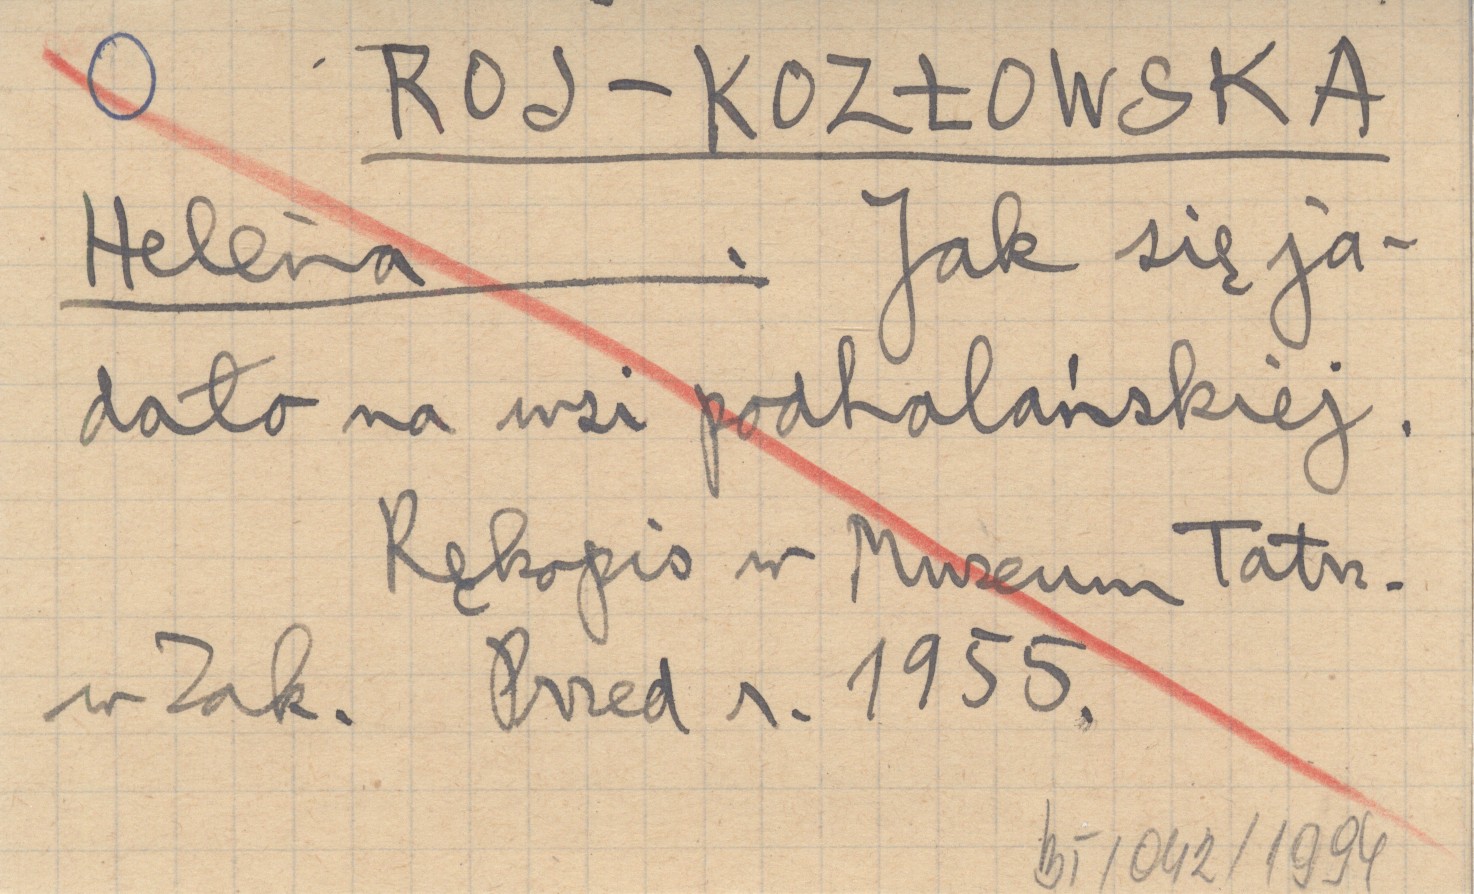 O ROJ-KOZŁOWSKA
Helena . Jak się ja-
dało na wsi podhalańskiej.
Rękopis w Muzeum Tatrz.
w Zak. Przed r. 1955.
BT/042/1994